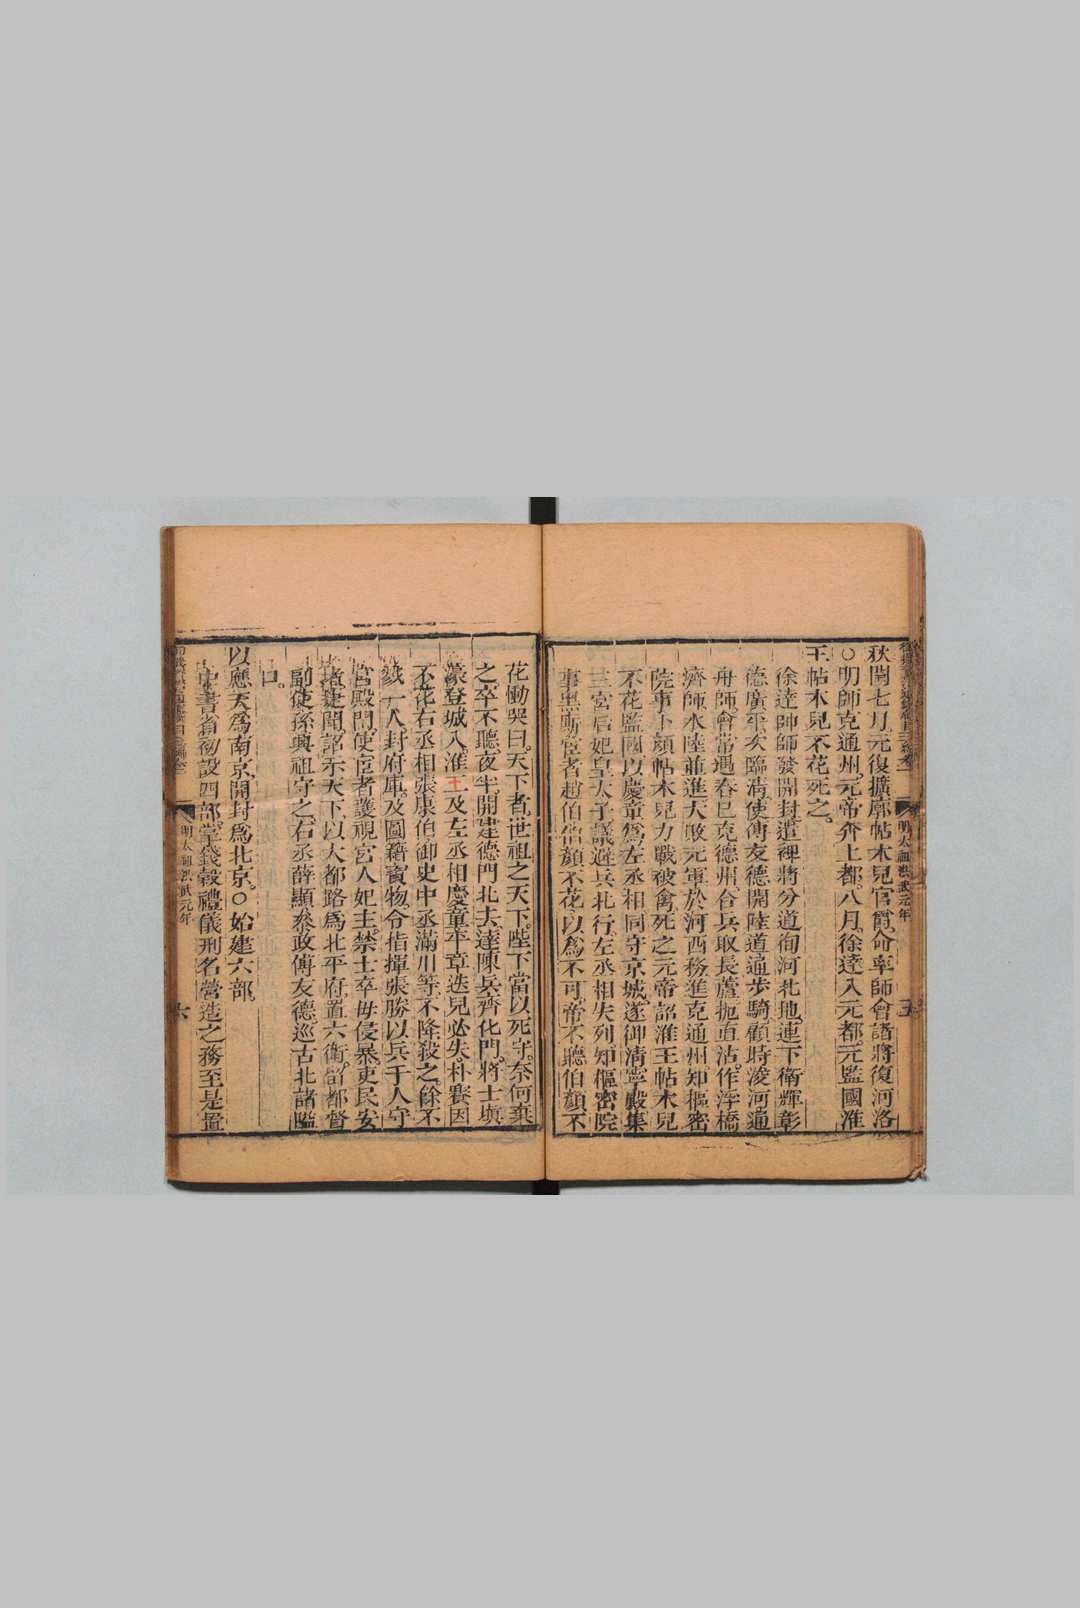 明太祖洪武元年
五
秋閏七月元復擴廓帖木兒官爵命率師會諸將復河洛
○明師克通州元帝奔上都八月徐達入元都元監國淮
王帖木兒不花死之
徐達帥師發開封遣裨將分道徇河北地連下衛輝彰
德廣平次臨淸使傅友德開陸道通步騎顧時浚河通
舟師會常遇春已克德州合兵取長蘆扼直沽作浮橋
濟師水陸並進大敗元軍於河西務進克通州知樞密
院事卜顏帖木兒力戰被禽死之元帝詔淮王帖木兒
不花監國以慶童爲左丞相同守京城遂御淸寧殿集
三宮后妃皇太子議避兵北行左丞相失列知樞密院
事黑厮宦者趙伯伯顏不花以爲不可帝不聽伯顏不
花慟哭曰天下者世祖之天下陛下當以死守奈何棄
之卒不聽夜半開建德門北去達陳兵齊化門將士塡
濠登城入淮王及左丞相慶童平章迭兒必失朴賽因
不花右丞相張康伯御史中丞滿川等不降殺之餘不
戮一人封府庫及圖籍寶物令指揮張勝以兵千人守
宮殿門使宦者護視宮人妃主禁士卒毋侵暴吏民安
堵捷聞詔示天下以大都路爲北平府置六衛留都督
副使孫興祖守之右丞薛顯參政傅友德巡古北諸隘
口
以應天爲南京開封爲北京○始建六部
中書省初設四部掌錢穀禮儀刑名營造之務至是置
明太祖洪武元年
六